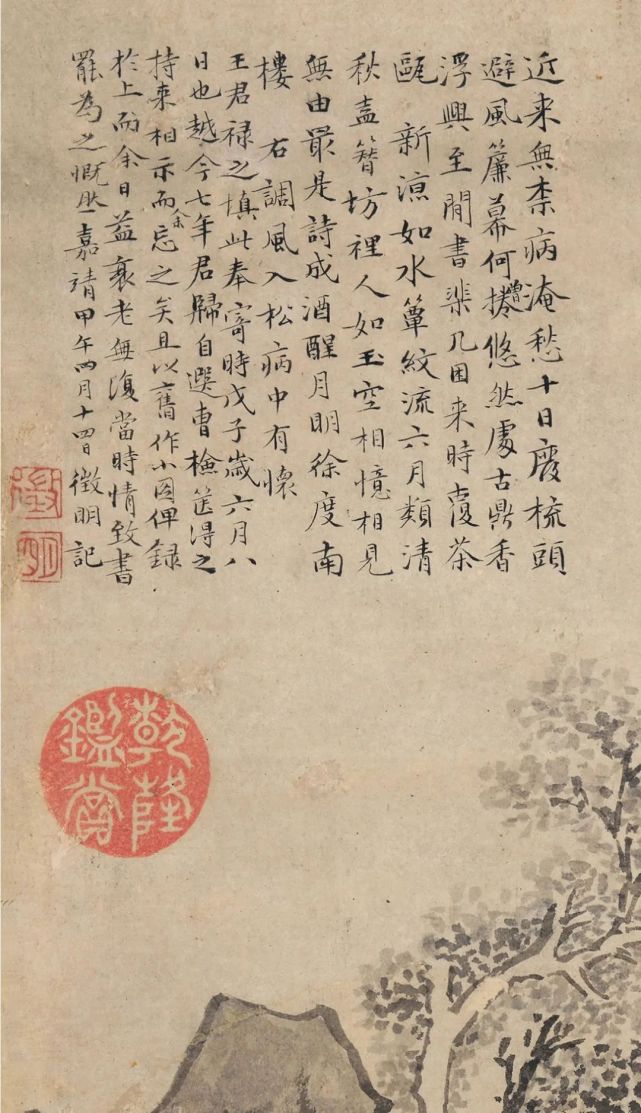 近来無柰病淹愁十日廢梳頭
避風簾幕何曾捲悠然處古鼎香
浮興至閒書棐几困来時覆茶
甌 新涼如水簟紋流六月類清
秋盍簪坊裡人如玉空相憶相見
無由最是詩成酒醒月明徐度南
樓 右調風入松病中有懷
王君禄之填此奉寄時戊子歲六月八
日也越今七年君歸自選曹檢篋得之
持来相示而余忘之矣且以舊作小圖俾録
於上而余日益衰老無復當時情致書
罷為之慨然嘉靖甲午四月十四日徵明記
徵
明
乾隆
鑑賞